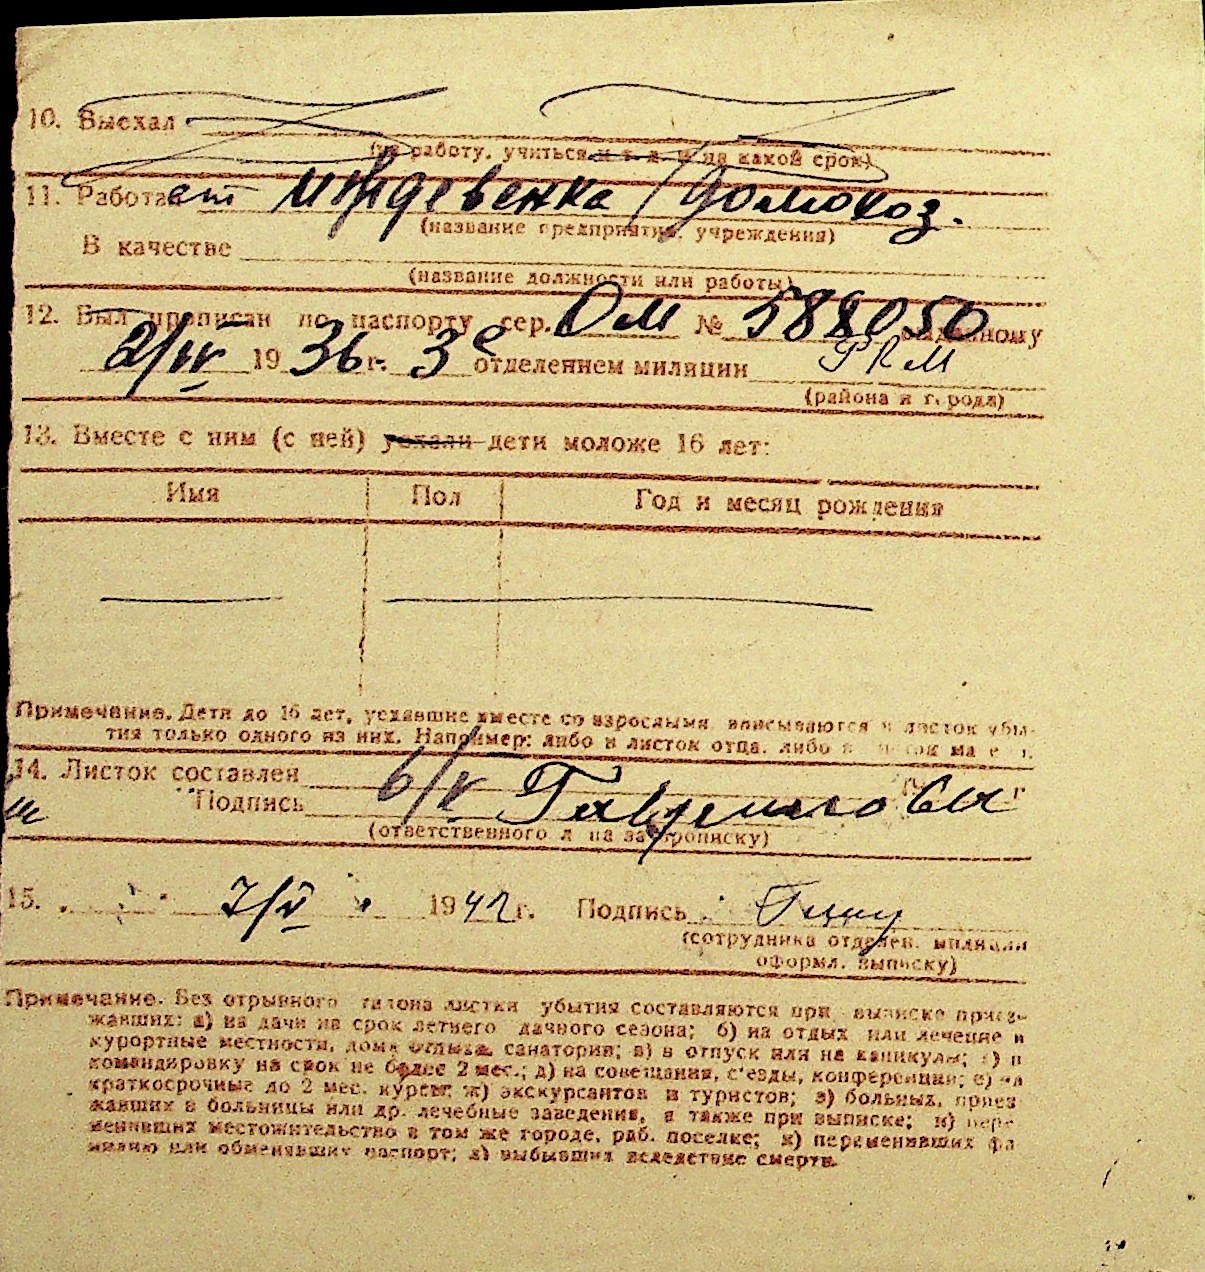 10. Выехал
(на работу, учиться и т. д. и на какой срок)
11. Работает иждевенка / домохоз.
(название предприятия, учреждения)
В качестве
(название должности или работы)
12. Был прописан по паспорту сер. ОМ № 588050 выданному
2/IV 1936 г. 3е отделением милиции РКМ
(района и города)
13. Вместе с ним (с ней) уехали дети моложе 16 лет:
Имя Пол Год и месяц рождения
Примечание. Дети до 16 лет, уехавшие вместе со взрослыми, вписываются в листок убы-
тия только одного из них. Например: либо в листок отца, либо в листок матери.
14. Листок составлен 6/V г.
Подпись Гаврилова
(ответственного л на за прописку)
15. 7/V 1942 г. Подпись
(сотрудника отделен. милиции
оформл. выписку)
Примечание. Без отрывного талона листки убытия составляются при выписке приез-
жавших: а) на дачи на срок летнего дачного сезона; б) на отдых или лечение в
курортные местности, дома отдыха, санатории; в) в отпуск или на каникулы; г) в
командировку на срок не более 2 мес.; д) на совещания, с'езды, конференции; е) на
краткосрочные до 2 мес. курсы; ж) экскурсантов и туристов; з) больных, приез-
жавших в больницы или др. лечебные заведения, а также при выписке; и) пере-
менивших местожительство в том же городе, раб. поселке; к) переменивших фа
милию или обменявших паспорт; л) выбывших вследствие смерти.